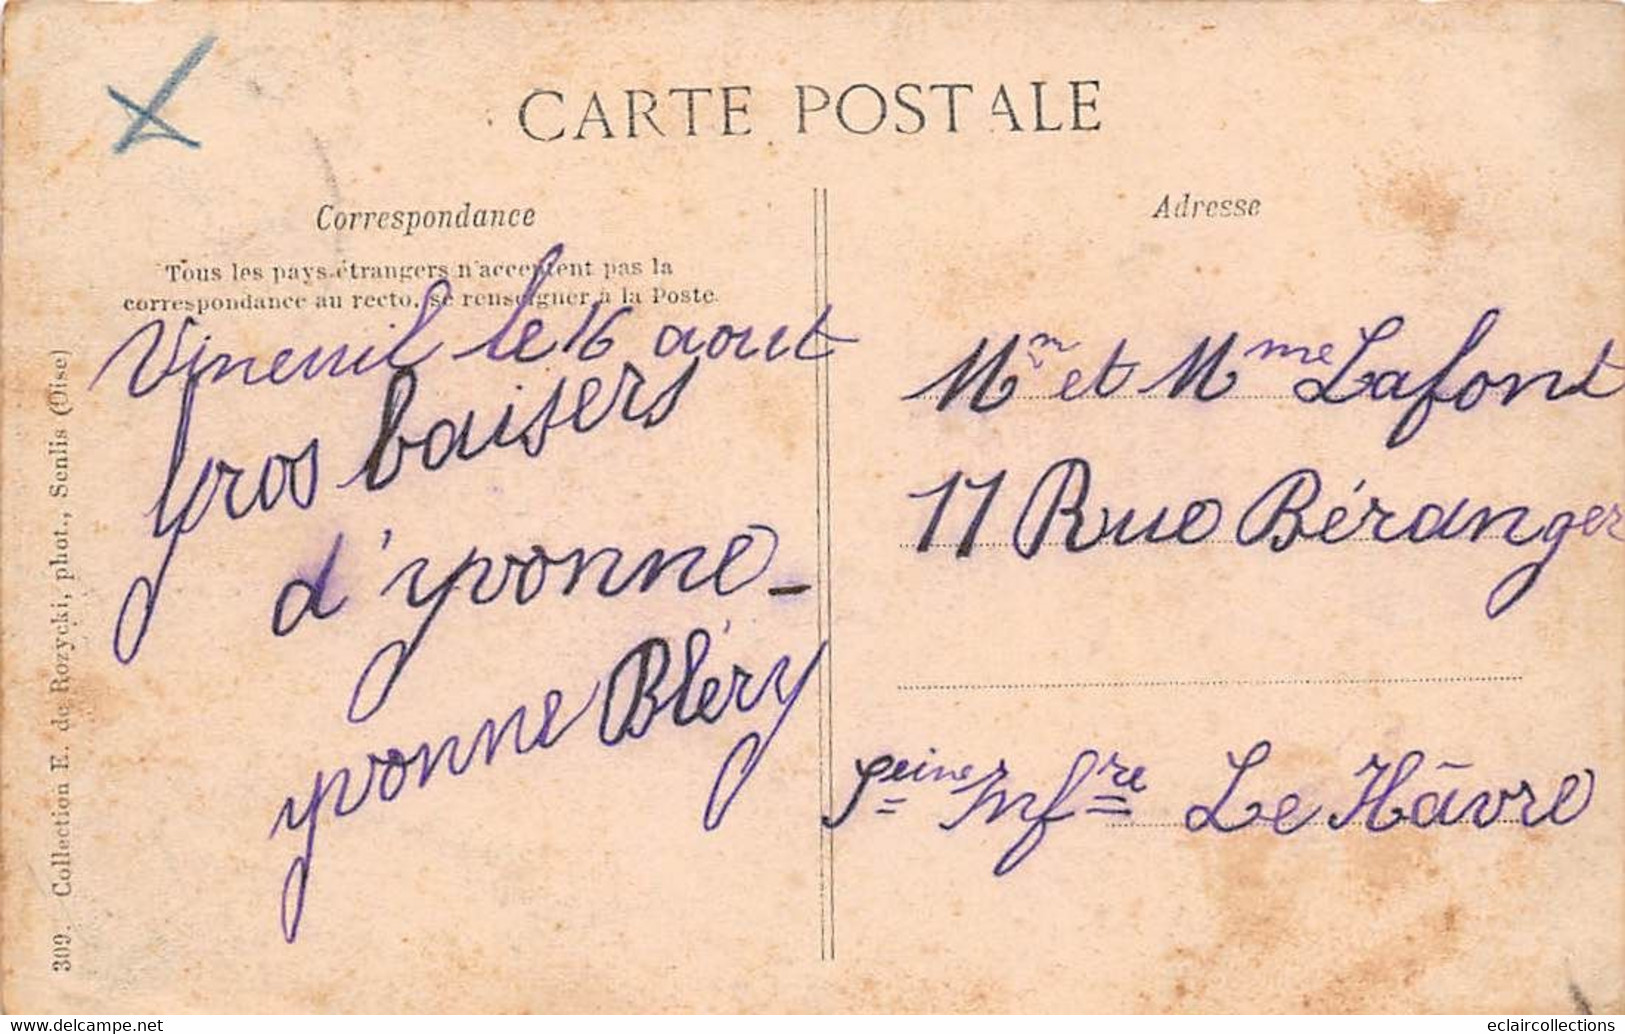 CARTE POSTALE
Correspondance
Tous les pays étrangers n'acceptent pas la
correspondance au recto, se renseigner à la Poste.
Vineuil le 16 aout
gros baisers
d'yvonne -
yvonne Bléry
Adresse
Mr et Mme Lafont
17 Rue Béranger
Seine Infre Le Hâvre
309. Collection E. de Rozycki, phot., Senlis (Oise)
www.delcampe.net
eclaircollections